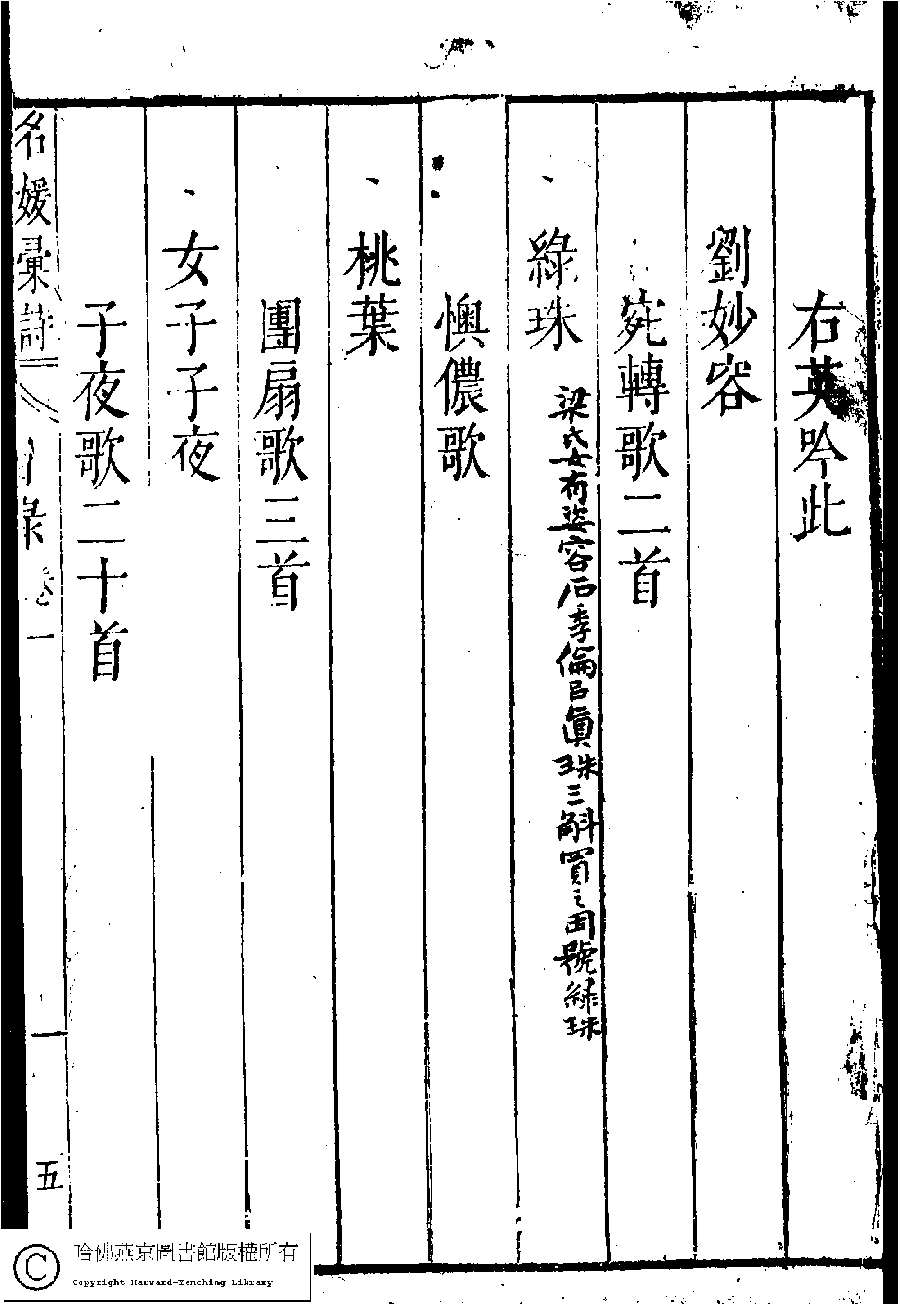 右英吟此
劉妙容
宛轉歌二首
綠珠 梁氏女有姿容石季倫㠯眞珠三斛買之因號綠珠
懊儂歌
桃葉
團扇歌三首
女子子夜
子夜歌二十首
名媛彙詩 目录 卷一 五
哈佛燕京圖書館版權所有
Copyright Harvard-Yenching Library